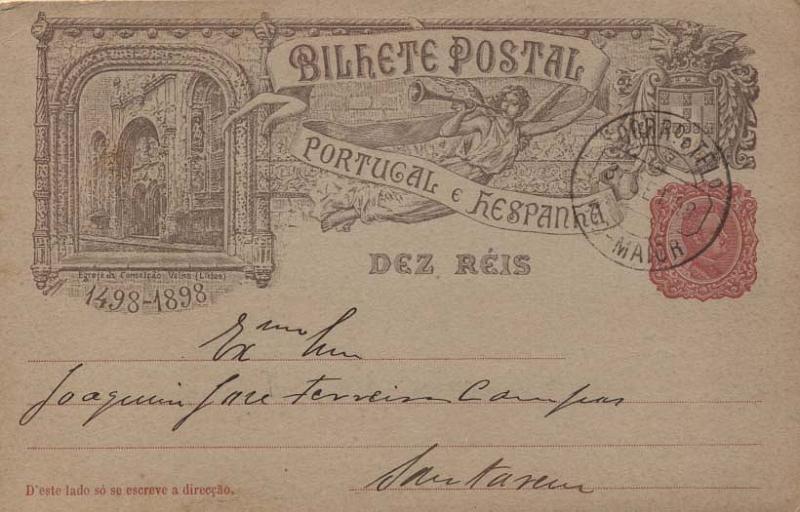 BILHETE POSTAL
PORTUGAL E HESPANHA
Egreja da Conceição Velha (Lisboa)
1498-1898
DEZ RÉIS
CORRO
MAIOR
Exmo Snr
Joaquim Jose Ferreira Campos
Santarem
D'este lado só se escreve a direcção.